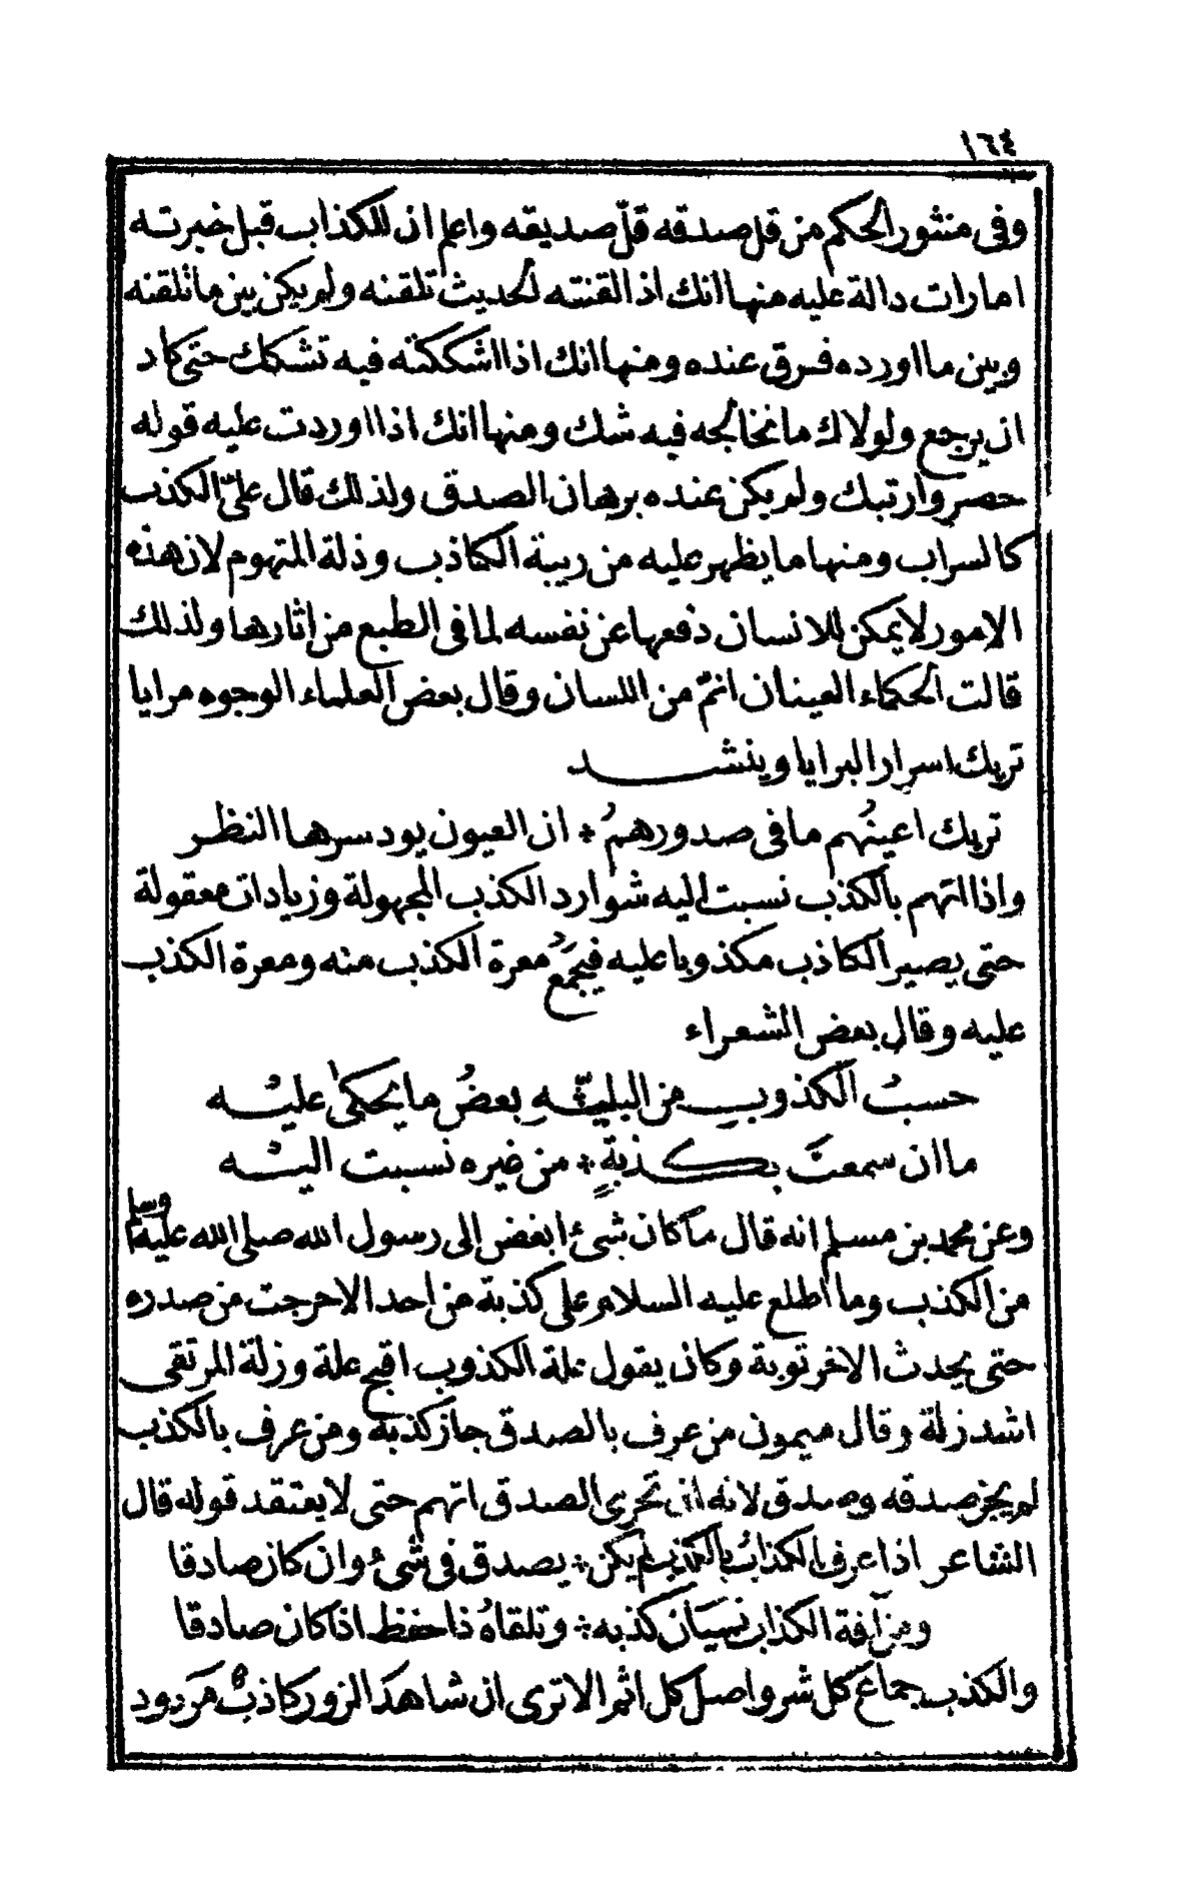 ١٦٤
وفى منثور الحكم من قل صدقه قلّ صديقه واعلم ان للكذاب قبل خبرته
امارات دالة عليه منها انك اذا القنته الحديث تلقنه ولم يكن بين ما تلقنه
وبين ما اورده فرق عنده ومنها انك اذا اشككته فيه تشكك حتى كاد
ان يرجع ولولاك ما تخالجه فيه شك ومنها انك اذا اوردت عليه قوله
حصر وارتبك ولم يكن عنده برهان الصدق ولذلك قال علىّ الكذب
كالسراب ومنها ما يظهر عليه من ريبة الكاذب وذلة المتهوم لان هذه
الامور لا يمكن للانسان دفعها عن نفسه لما فى الطبع من اثارها ولذلك
قالت الحكماء العينان انمّ من اللسان وقال بعض العلماء الوجوه مرايا
تريك اسرار البرايا وينشد
تريك اعينُهم ما فى صدورهمُ * ان العيون يود سرها النظر
واذا اتهم بالكذب نسبت اليه شوارد الكذب المجهولة وزيادات معقولة
حتى يصير الكاذب مكذوبا عليه فيجمَعُ معرة الكذب منه ومعرة الكذب
عليه وقال بعض الشعراء
حسبُ الكذوبِ من البليّةِ بعضُ ما يحكى عليْه
ما ان سمعتَ بكذبةٍ * من غيره نسبت اليْه
وعن محمد بن مسلم انه قال ما كان شىء ابغض الى رسول الله صلى الله عليه وسلم
من الكذب وما اطلع عليه السلام على كذبة من احد الا خرجت من صدره
حتى يحدث الاخر توبة وكان يقول علة الكذوب اقبح علة وزلة المرتقى
اشد زلة وقال ميمون من عرف بالصدق جاز كذبه ومن عرف بالكذب
لم يجز صدقه وصدق لانه ان تحرى الصدق اتهم حتى لا يعتقد قوله قال
الشاعر اذا عرف الكذابُ بالكذب لم يكن * يصدق فى شىء وان كان صادقا
ومن آفة الكذاب نسيَان كذبه * وتلقاهُ ذا حفظ اذا كان صادقا
والكذب جماع كل شر واصل كل اثم الا ترى ان شاهد الزور كاذب مردود